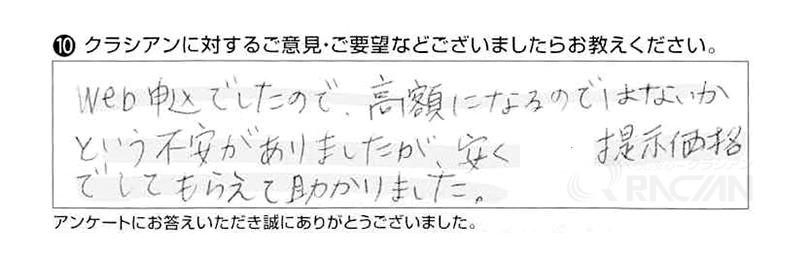 ❿ クラシアンに対するご意見・ご要望などございましたらお教えください。
Web申込でしたので、高額になるのではないか
という不安がありましたが、安く 提示価格
でしてもらえて助かりました。
QRACIAN
アンケートにお答えいただき誠にありがとうございました。